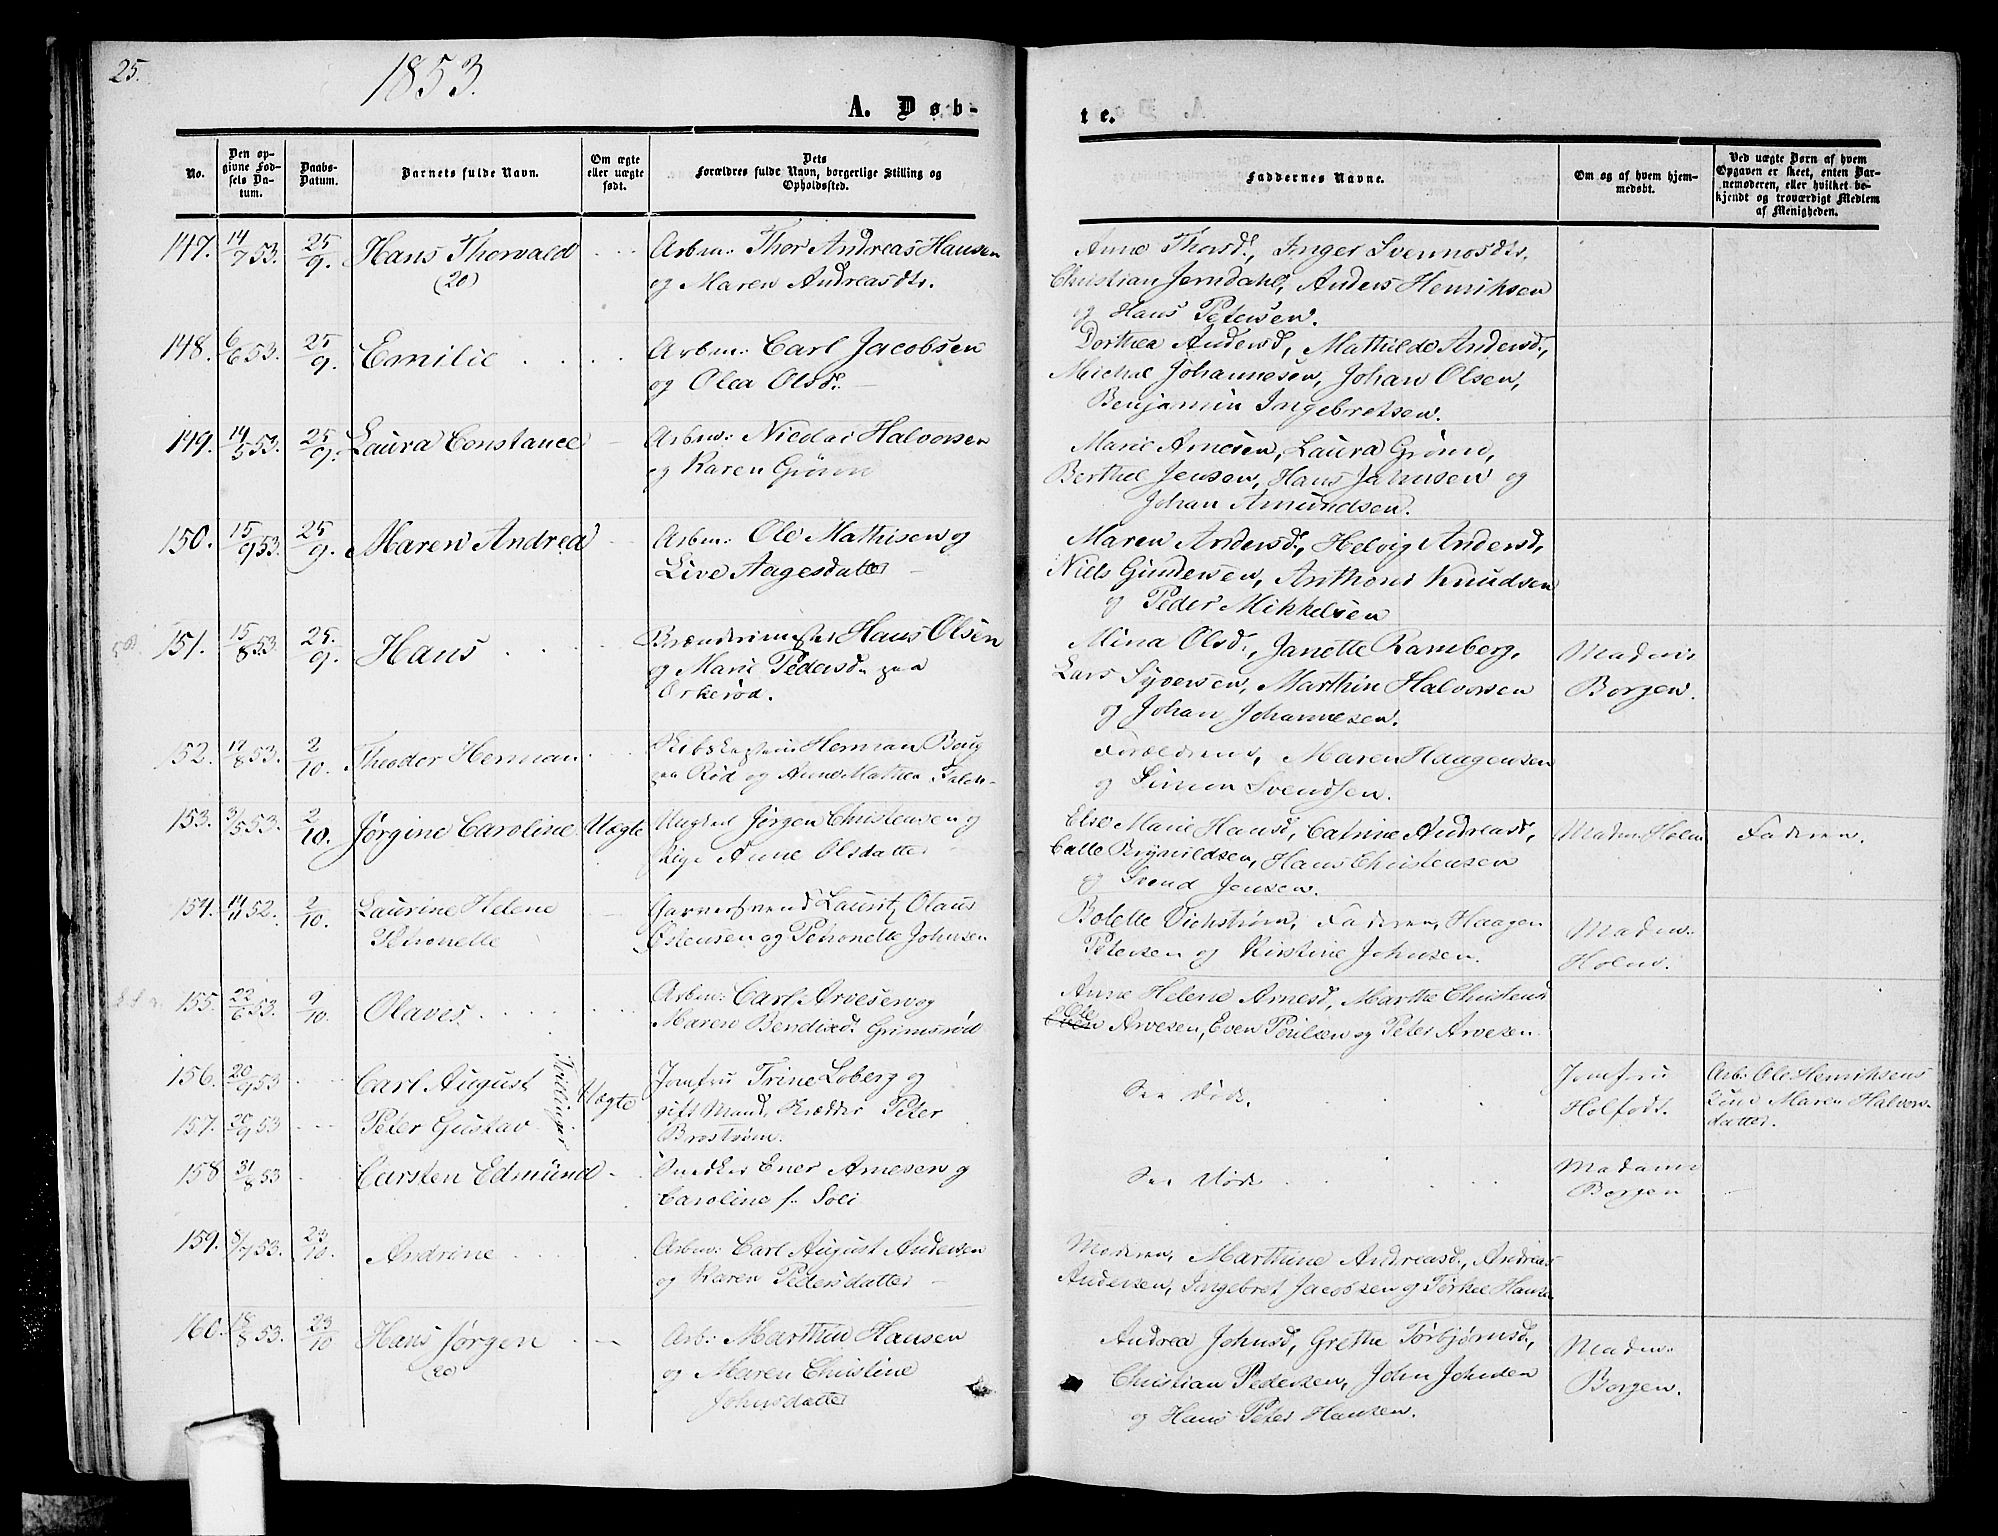 25.
1853.
A. Døb-
te.
No.
Den op-
givne Fød-
sels Da-
tum.
Daabs-
Datum.
Barnets fulde Navn.
Om ægte
eller uægte
født.
Dets
Forældres fulde Navn, borgerlige Stilling og
Opholdssted.
Faddernes Navne.
Om og af hvem hjem-
medøbt.
Ved uægte Børn af hvem
Opgaven er skeet, enten Bar-
nemoderen, eller hvilket be-
kjendt og troværdigt Medlem
af Menigheden.
147. 14/7 53. 25/9. Hans Thorvald Arbm: Thor Andreas Hansen
(20) og Maren Andreasdtr.
Anne Thorsd., Inger Svennosdtr.
Christian Jerndahl, Anders Henriksen
og Hans Petersen.
148. 6/6 53. 25/9. Emilie Arbm: Carl Jacobsen
og Olea Olsd.
Dorthea Andersd, Mathilde Andersd.,
Michel Johannesen, Johan Olsen,
Benjamin Ingebretsen.
149. 14/5 53. 25/9. Laura Constance Arbm: Nicolai Halvorsen
og Karen Grønn
Marie Arnesen, Laura Grønn,
Berthel Jensen, Hans Jahnsen og
Johan Amundsen.
150. 15/9 53. 25/9. Maren Andrea Arbm: Ole Mathisen og
Live Aagesdatter
Maren Andersd., Helvig Andersd,
Niels Gundersen, Anthoni Knudsen
og Peder Mikkelsen
151. 15/8 53. 25./9. Hans Brænderimester Hans Olsen
og Marie Pedersd. paa
Orkerød.
Mina Olsd., Janette Ramberg,
Lars Syversen, Marthin Halvorsen
og Johan Johannesen.
Madm:
Borgen.
152. 17/8 53. 2/10. Theodor Herman Skibskaptein Herman Baug
paa Rød og Anne Mathea Falck.
Forældrene, Maren Haagensen
og Simon Svendsen.
153. 3/5 53. 2/10. Jørgine Caroline Uægte Ungkarl Jørgen Christensen og
Pige Anne Olsdatter
Else Marie Hansd, Catrine Andreasd,
Calle Brynildsen, Hans Christensen
og Svend Jensen.
Madm Holm
Faderen.
154. 14/11 52. 2/10. Laurine Helene
Petronelle
Garversvend Lauritz Olaus
Østensen og Petronelle Johnsen
Bolette Vichstrøm, Faderen, Haagen
Petersen og Kirstine Johnsen.
Madm.
Holm.
155. 22/6 53. 9/10. Olaves Arbm: Carl Arvesen og
Maren Bendixd. Grimsrød
Anne Helene Arnesd, Marthe Christens
Ole
Even Arvesen, Even Poulsen og Peter Arvesen.
156. 20/9 53 Carl August Tvillinger Uægte Jomfru Trine Loberg og
157. 20/9 53 Peter Gustav gift Mand, Kræmmer Peter
Brostrøm.
See Døde.
Jomfru
Holfodt.
Arb: Ole Henriksens
Enke Maren Halvors-
datter.
158 31/8 53 Carsten Edmünd Snedker Ener Arnesen og
Caroline f. Soli
See Døde
Madame
Borgen
159. 8/7 53. 23/10. Andrine Arbm: Carl August Andersen
og Karen Pedersdatter
Moderen, Marthine Andreasd., Andreas
Andersen, Ingebret Jacobsen og Torkel Hansen
160. 18/8 53. 23/10 Hans Jørgen Arb: Marthin Hansen
(20) og Maren Christine
Johnsdatter
Andrea Johnsd, Grethe Torbjørnsd,
Christian Pedersen, John Johnsen
og Hans Peter Hansen.
Madm.
Borgen.